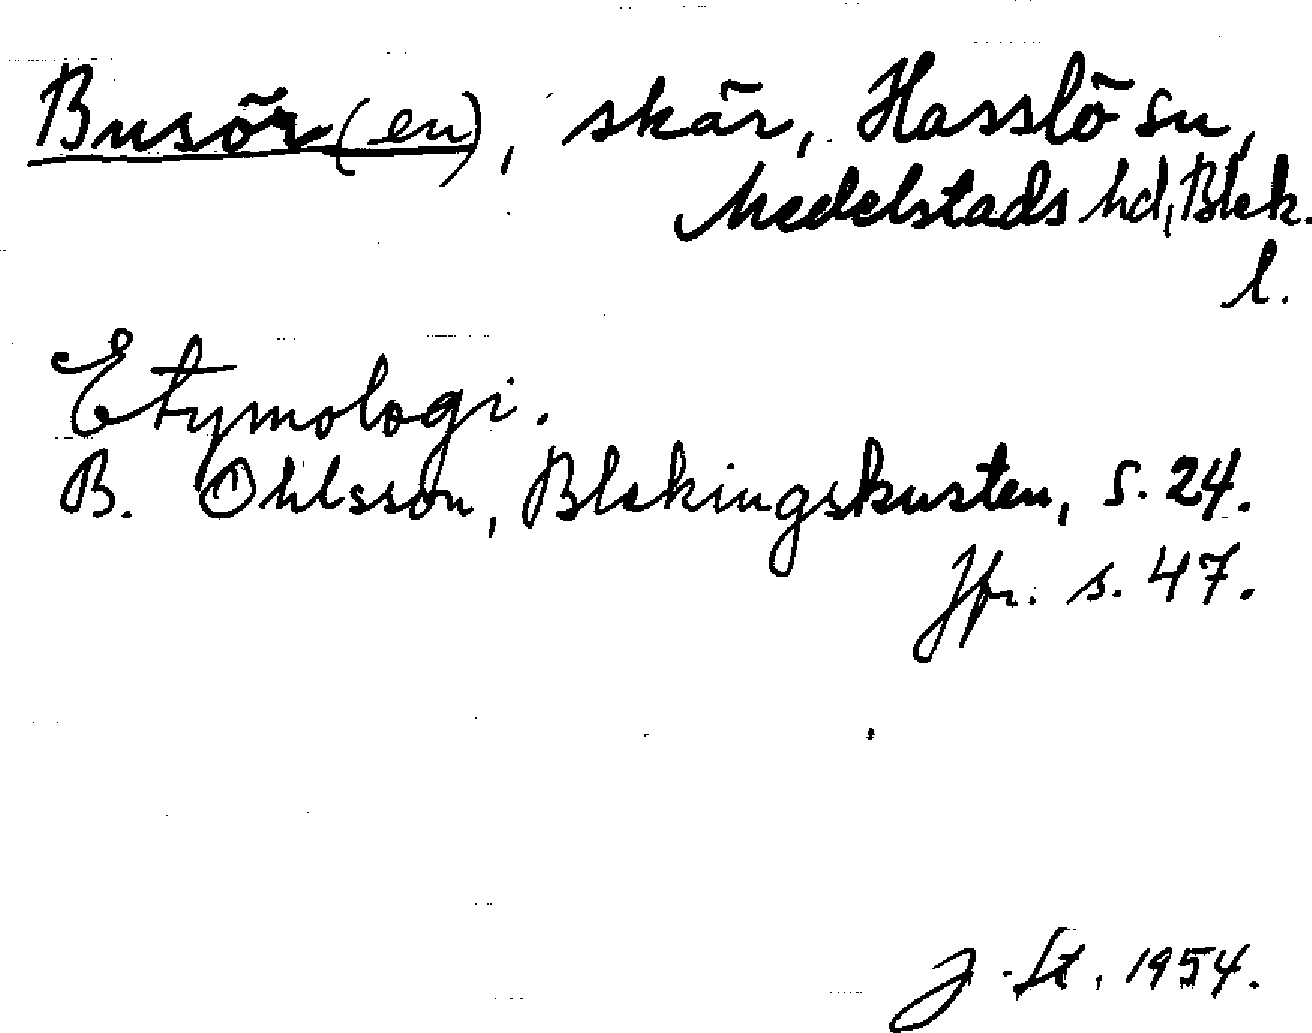 Busör(en), skär, Hasslö sn,
Medelstads hd, Blek.
l.
Etymologi.
B. Ohlsson, Blekingskusten, s. 24.
Jfr. s. 47.
J. St. 1954.